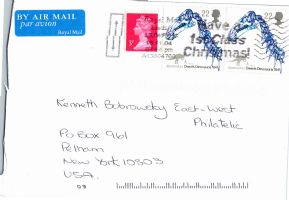 BY AIR MAIL
par avion
Royal Mail
Have a
1st Class
Christmas!
22
22
Kenneth Bobrowsky East-West
Philatelic
PO Box 961
Pelham
New York 10803
USA.